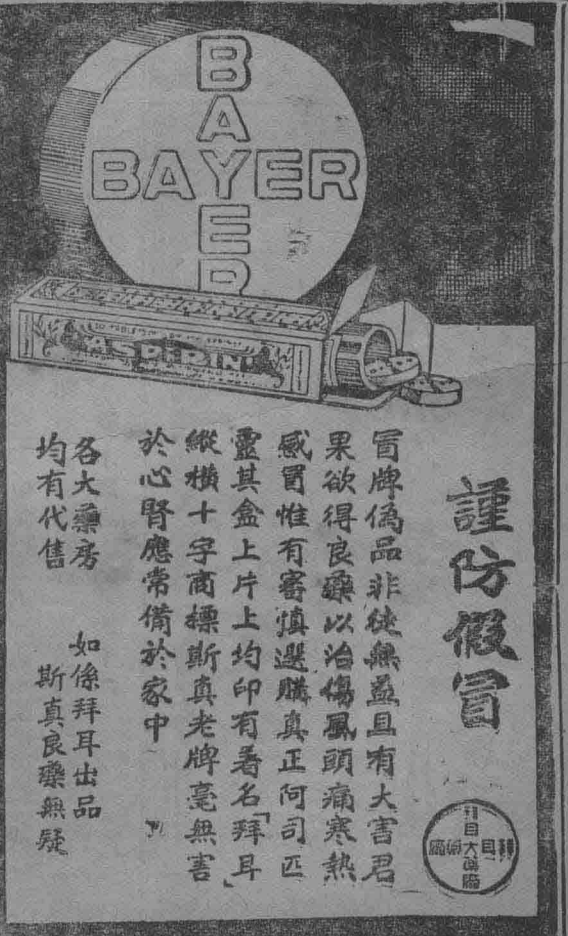 BAYER
BAYER
ASPIRIN
謹防假冒
冒牌偽品非徒無益且有大害君
果欲得良藥以治傷風頭痛寒熱
感冒惟有審慎選購真正阿司匹
靈其盒上片上均印有著名「拜耳」
縱橫十字商標斯真老牌毫無害
於心腎應常備於家中
各大藥房
均有代售
如係拜耳出品
斯真良藥無疑